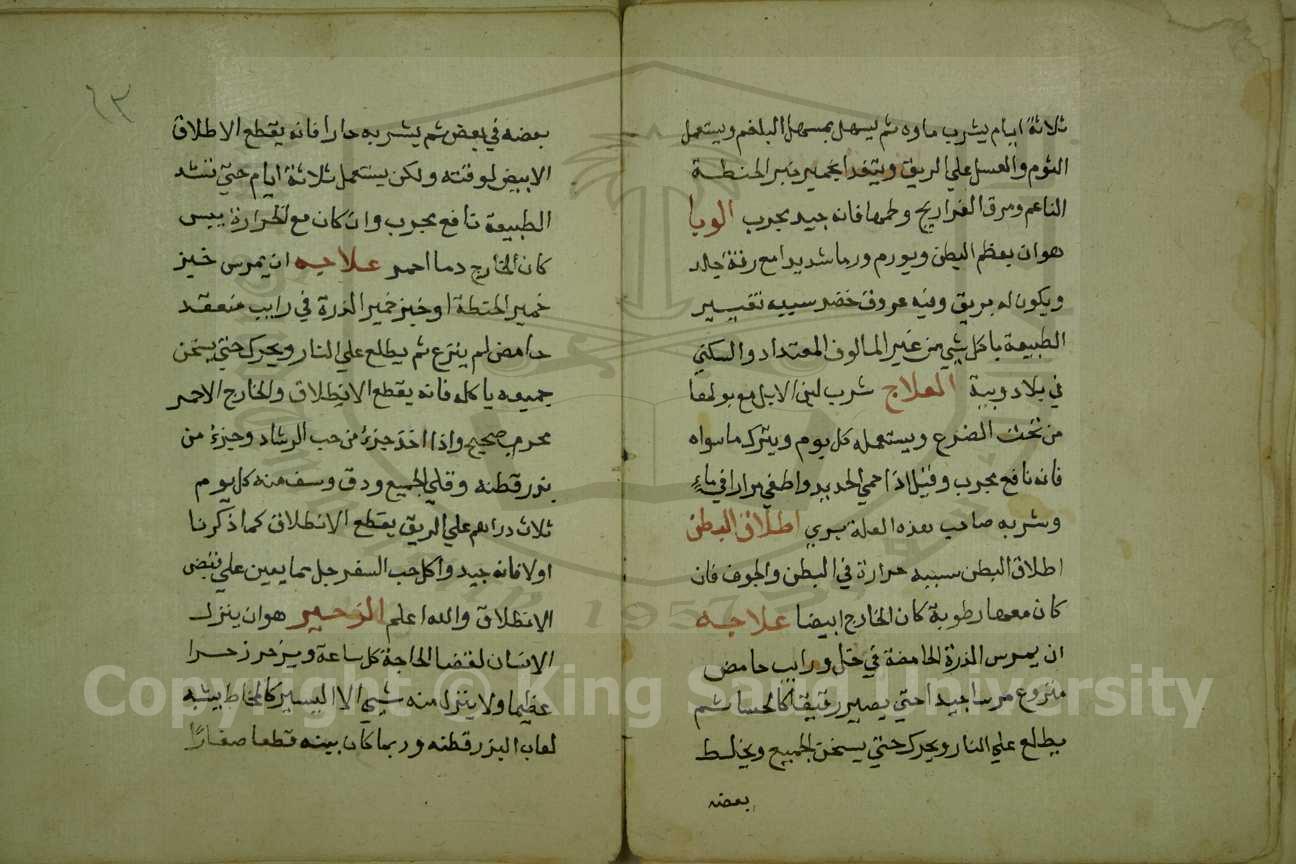 ثلاثة ايام يشرب ماوه ثم يسهل بمسهل البلغم ويستعمل
الثوم والعسل علي الريق ويتغدا بخمير خبز الحنطة
الناعم ومرق الفراريج ولحمها فانه جيد مجرب الوبا
هو ان يعظم البطن ويورم ورما شديدا مع رقة جلد
ويكون له بريق وفيه عروق خضر سببه تغيير
الطبيعة باكل شي من غير المالوف المعتداد والسكني
في بلاد وبية العلاج شرب لبن الابل مع بولها
من تحت الضرع ويستعمله كل يوم ويترك ما سواه
فانه نافع مجرب وقيل اذا احمي الحديد واطفي مرارا في ماءٍ
وشربه صاحب هذه العلة بري اطلاق البطن
اطلاق البطن سببه حرارة في البطن والجوف فان
كان معها رطوبة كان الخارج ابيضا علاجه
ان يمرس الذرة الحامضة في خل ورايب حامض
منزوع مرسا جيدا حتي يصير رقيقا كالحسا ثم
يطلع علي النار ويحرك حتي يسخن الجميع ويخلط
بعضه
٦٣
بعضه في بعض ثم يشربه حارا فانه يقطع الاطلاق
الابيض لوقته ولكن يستعمل ثلاثة ايام حتي تنشد
الطبيعة نافع مجرب وان كان مع الحرارة يبس
كان الخارج دما احمر علاجه ان يمرس خبز
خمير الحنطة او خبز خمير الذرة في رايب منعقد
حامض لم ينزع ثم يطلع علي النار ويحرك حتي يسخن
جميعه ياكله فانه يقطع الانطلاق والخارج الاحمر
مجرب صحيح واذا اخذ جزءٌ من حب الرشاد وجزءٌ من
بزر قطنه وقلي الجميع ودق وسف منه كل يوم
ثلاث دراهم علي الريق يقطع الانطلاق كما ذكرنا
اولا فانه جيد واكل حب السفرجل مما يعين علي قبض
الانطلاق والله اعلم الزحير هو ان ينزل
الانسان لقضا الحاجة كل ساعة ويزحر زحرا
عظيما ولا ينزل منه شي الا اليسير كالمخاط يشبه
لعاب البزر قطنه وربما كان بينه قطعا صغارًا
Copyright © King Saud University
1957